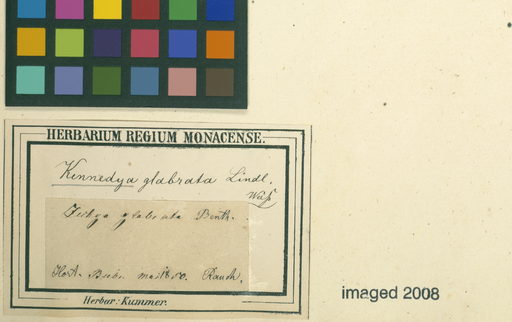 HERBARIUM REGIUM MONACENSE.
Kennedya glabrata Lindl.
Zichya glabrata Benth.
Hort. Rauch.
Herbar: Kummer.
imaged 2008